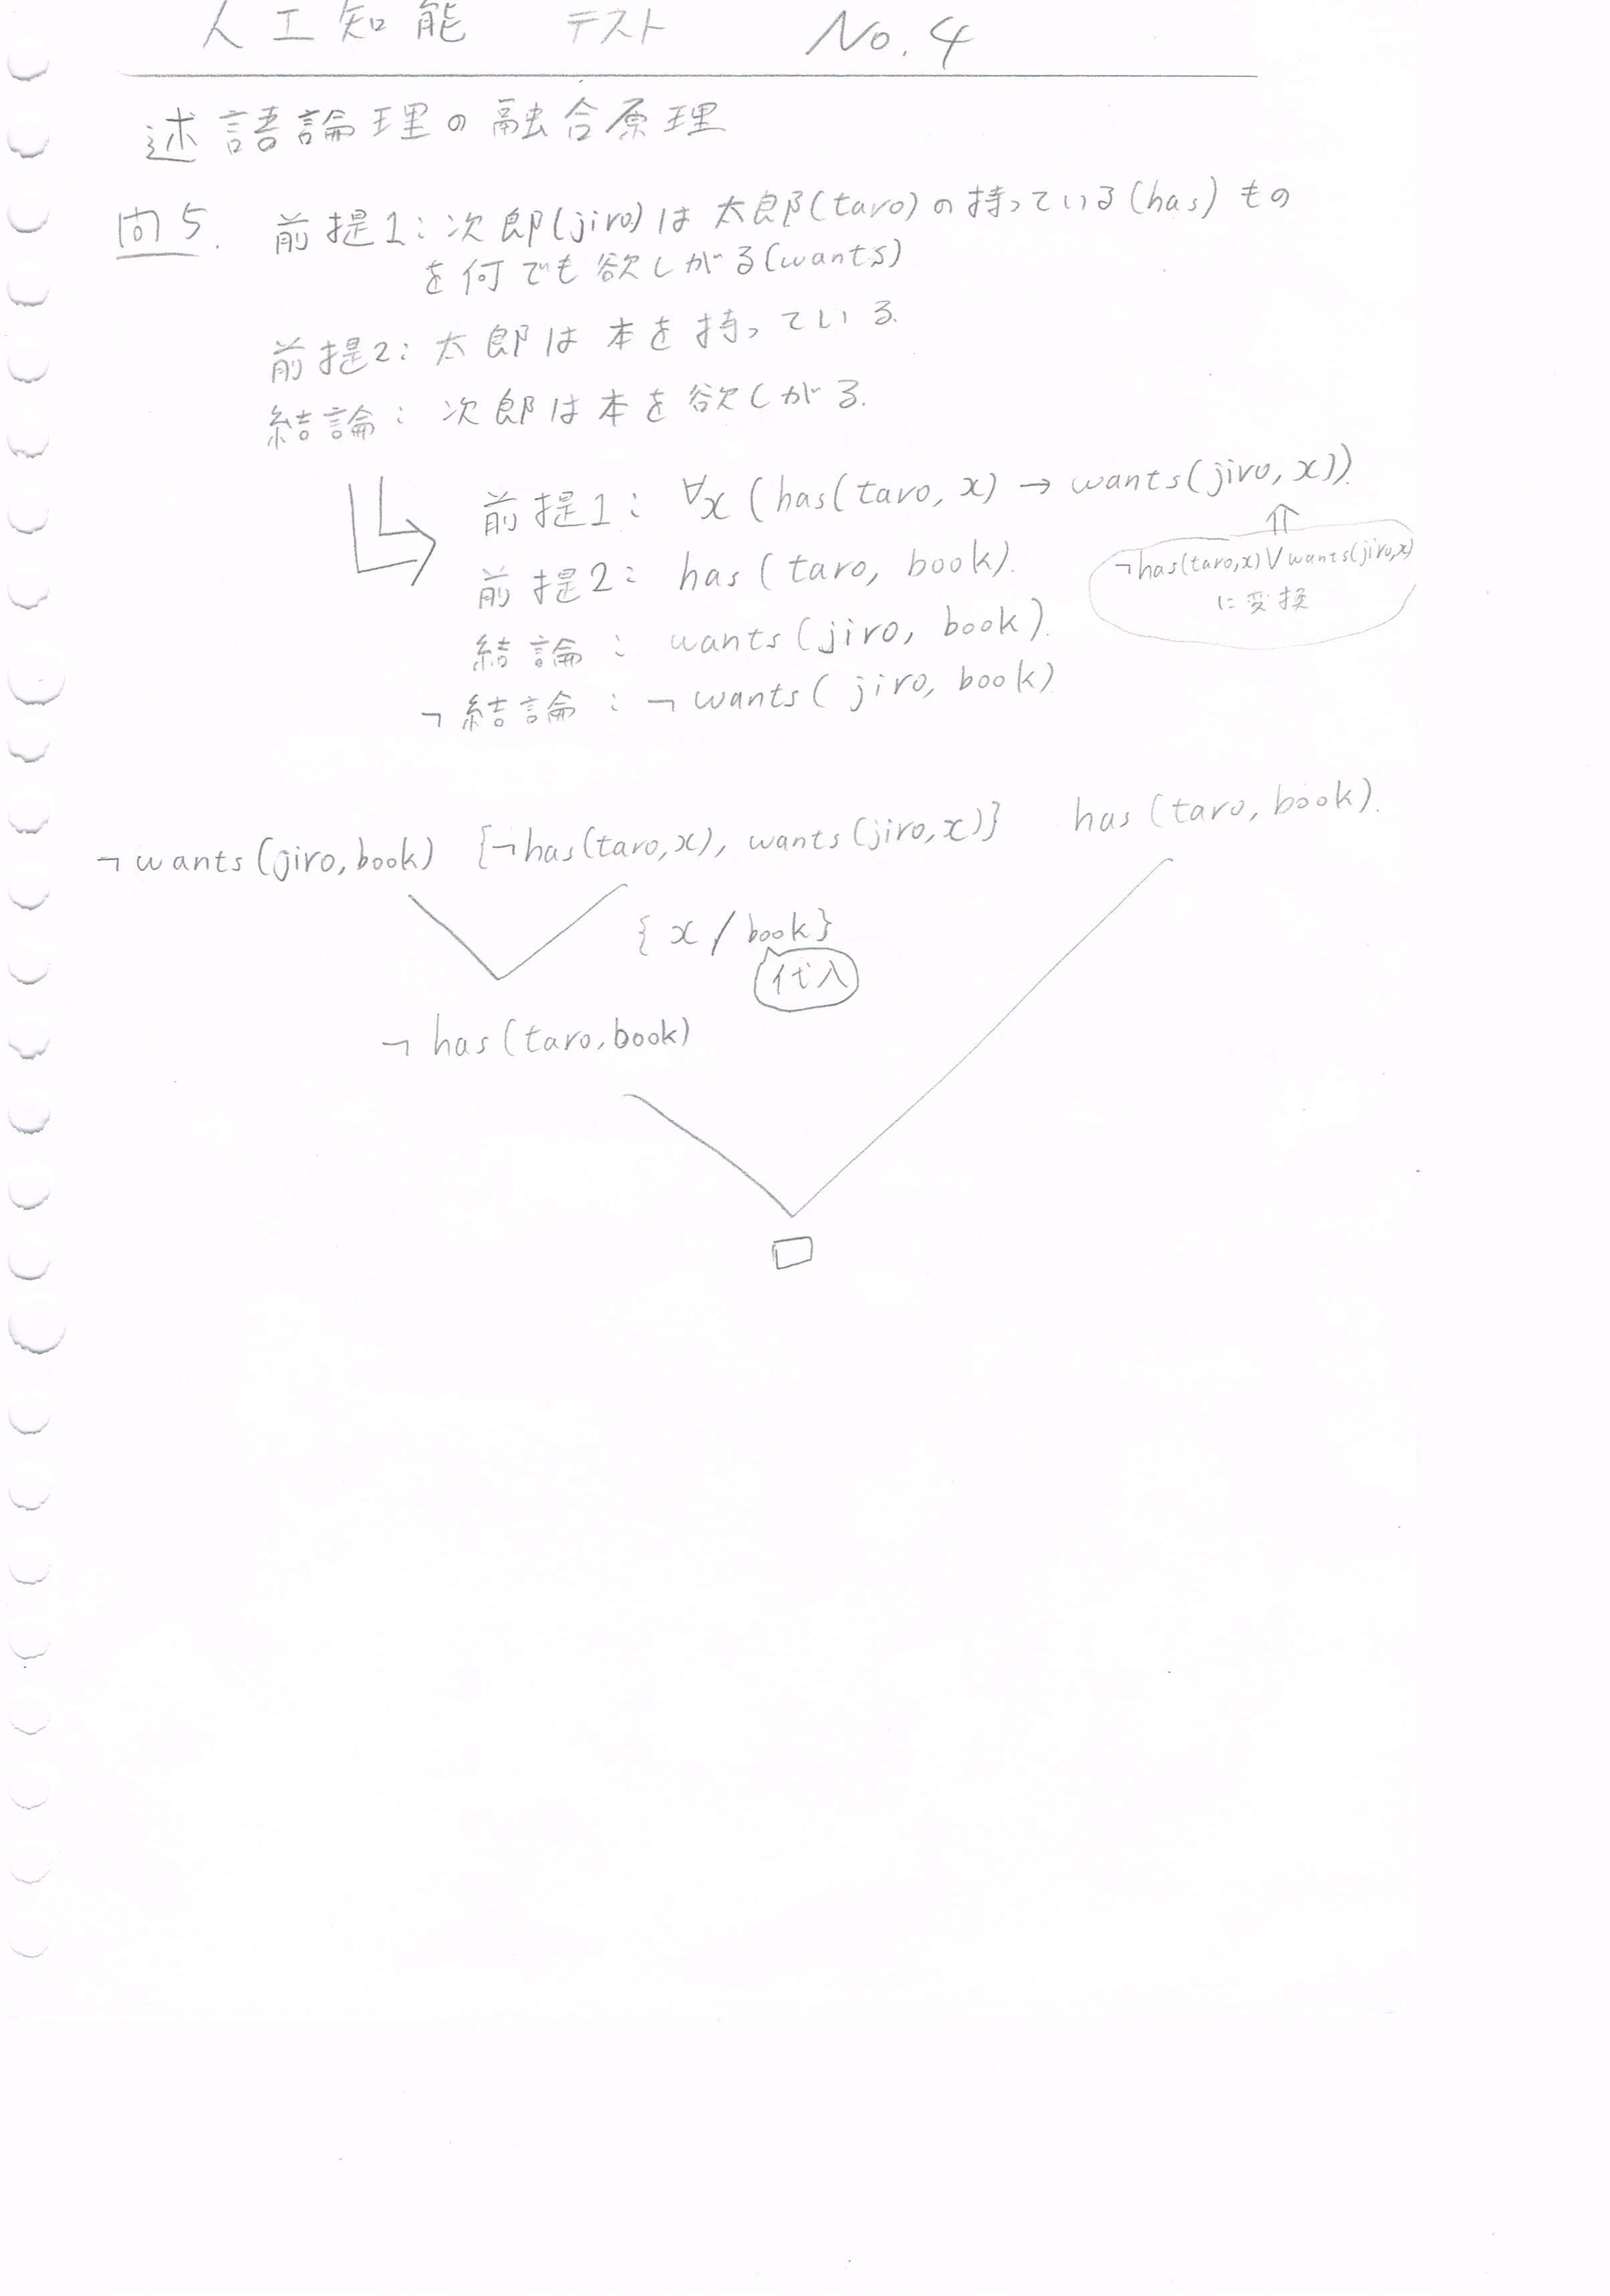 人工知能 テスト No.4
述語論理の融合原理
問5. 前提1: 次郎(jiro)は太郎(taro)の持っている(has)もの
を何でも欲しがる(wants)
前提2: 太郎は本を持っている.
結論: 次郎は本を欲しがる.
前提1: ∀x (has(taro, x) → wants(jiro, x)).
⇑
¬has(taro,x)∨wants(jiro,x)
に変換
前提2: has(taro, book).
結論: wants(jiro, book).
¬結論: ¬wants(jiro, book)
¬wants(jiro,book) {¬has(taro,x), wants(jiro,x)} has(taro, book).
{x/book}
代入
¬has(taro,book)
□